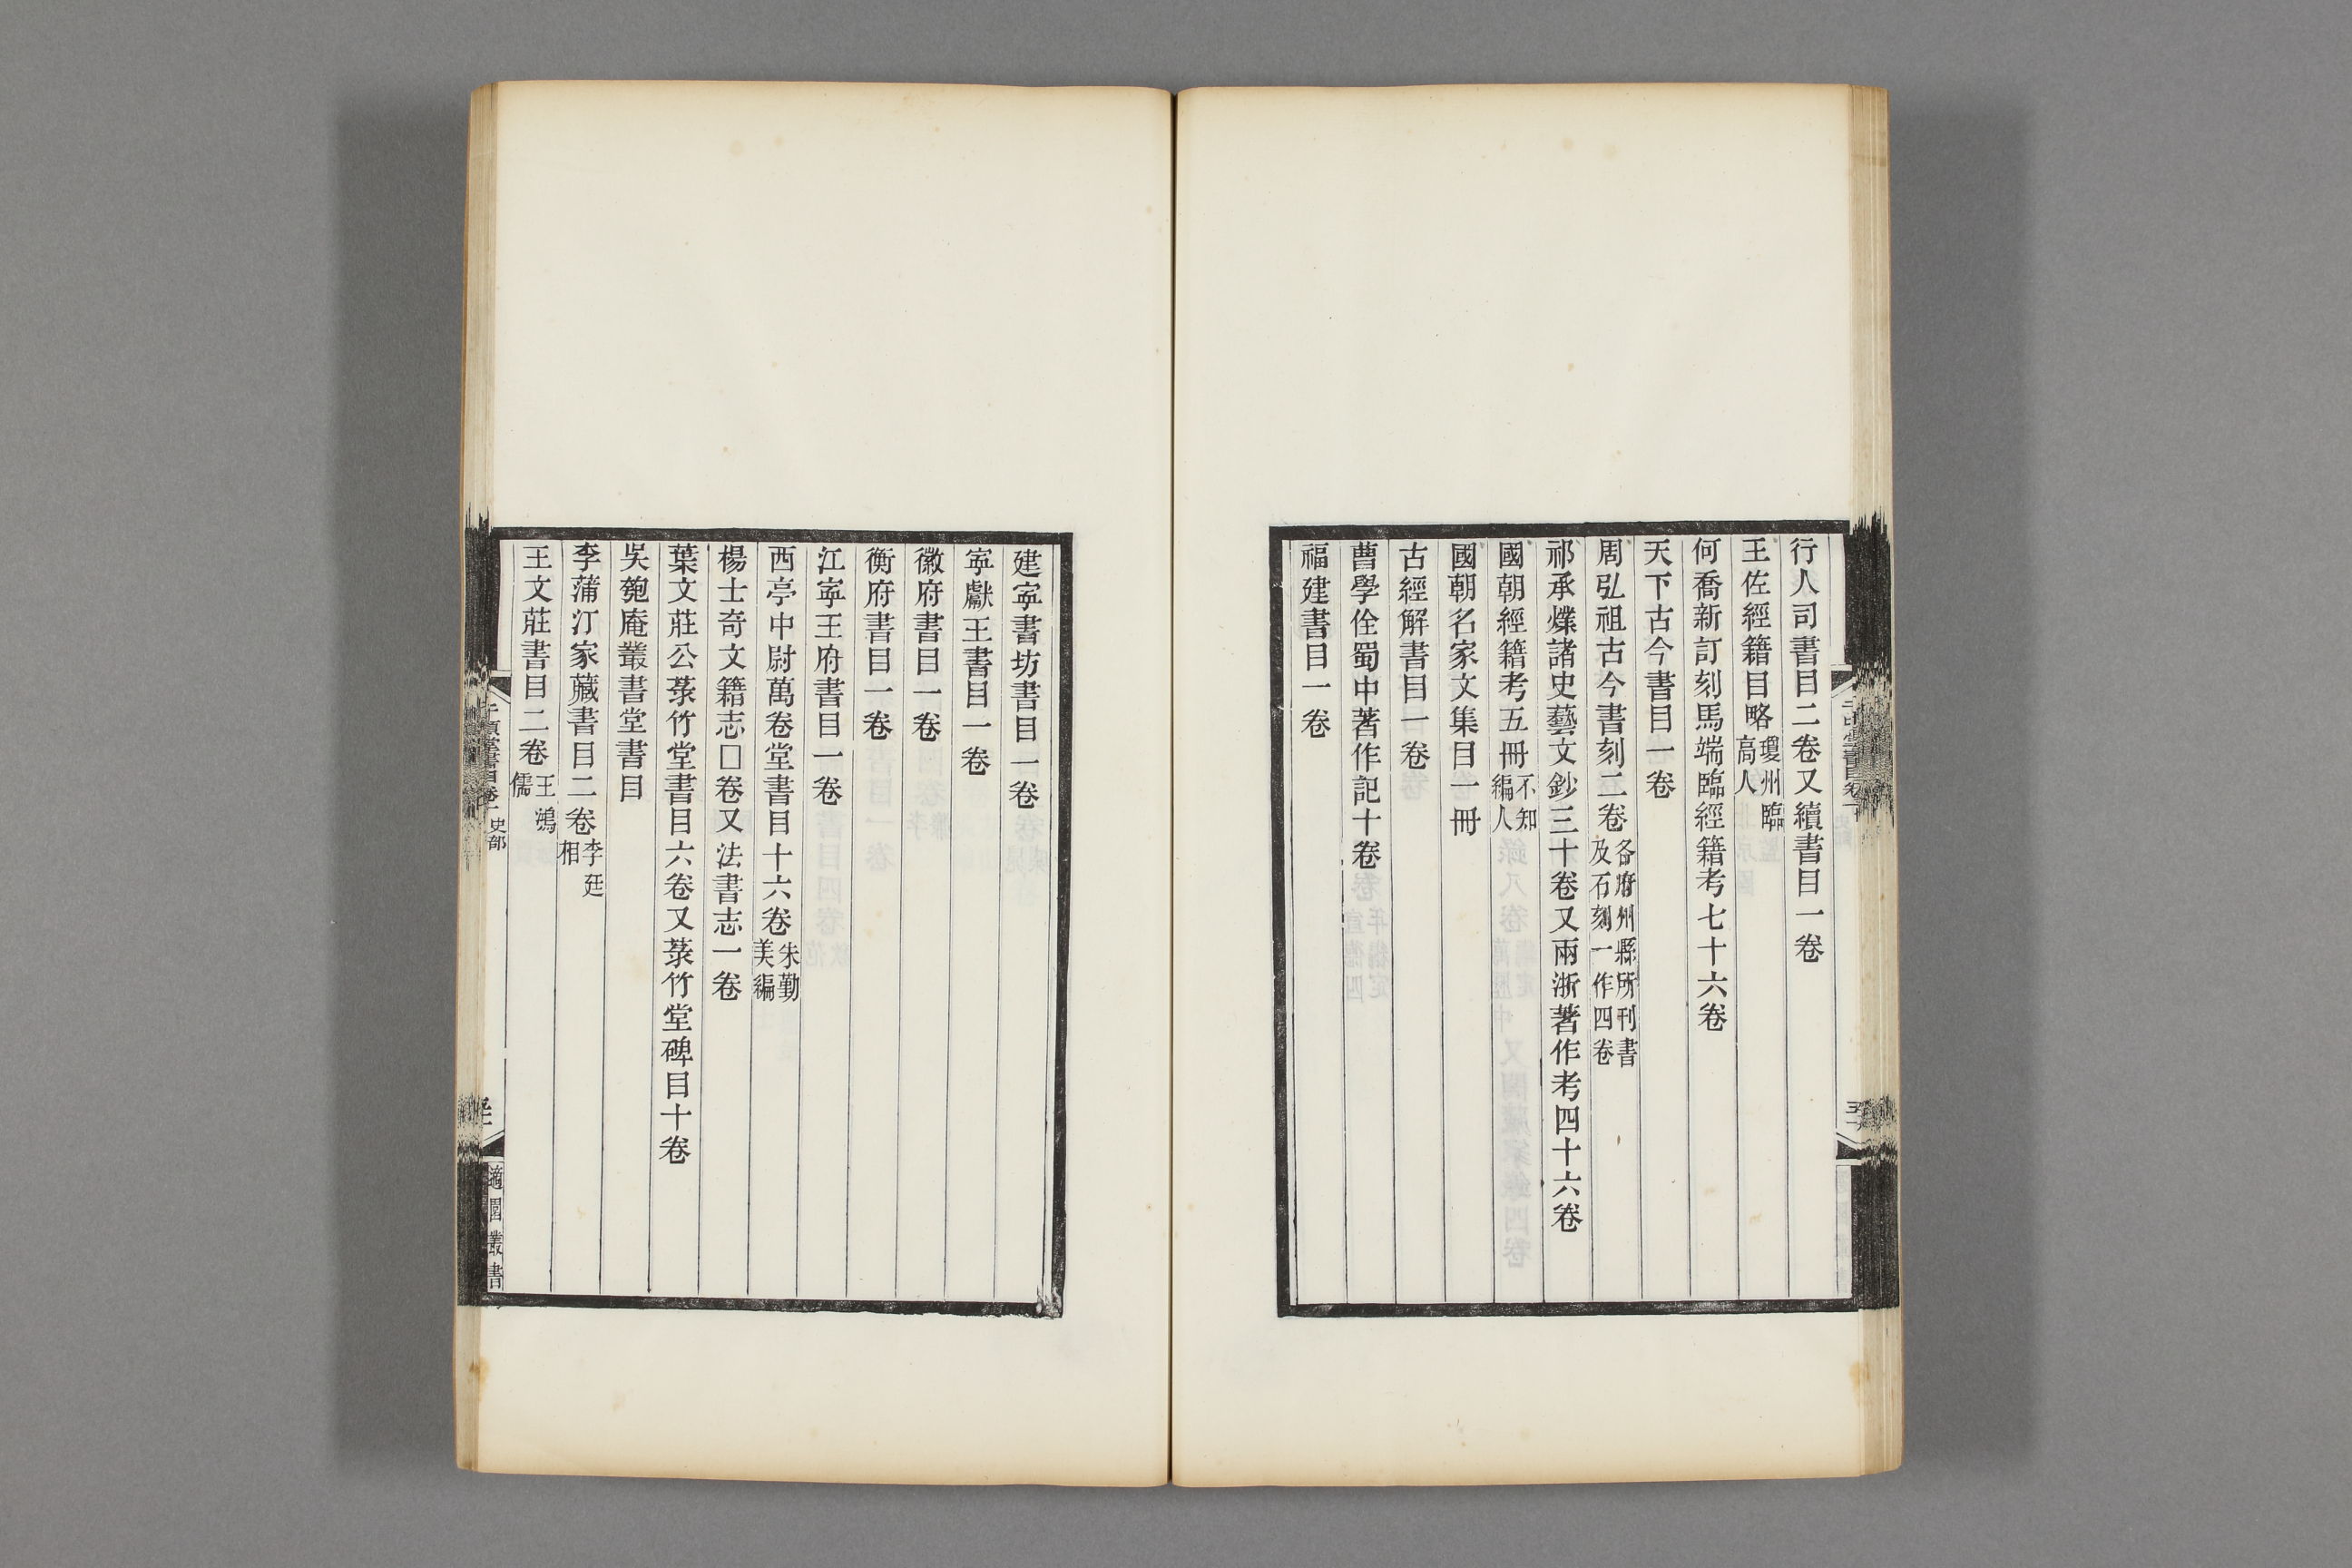 行人司書目二卷又續書目一卷
王佐經籍目略瓊州臨高人
何喬新訂刻馬端臨經籍考七十六卷
天下古今書目一卷
周弘祖古今書刻二卷各府州縣所刊書及石刻一作四卷
祁承㸁諸史藝文鈔三十卷又兩浙著作考四十六卷
國朝經籍考五冊不知編人
國朝名家文集目一冊
古經解書目一卷
曹學佺蜀中著作記十卷
福建書目一卷
建寧書坊書目一卷
寧獻王書目一卷
徽府書目一卷
衡府書目一卷
江寧王府書目一卷
西亭中尉萬卷堂書目十六卷朱勤美編
楊士奇文籍志□卷又法書志一卷
葉文莊公菉竹堂書目六卷又菉竹堂碑目十卷
吳匏庵叢書堂書目
李蒲汀家藏書目二卷李廷相
王文莊書目二卷王鴻儒
千頃堂書目卷十 史部
適園叢書